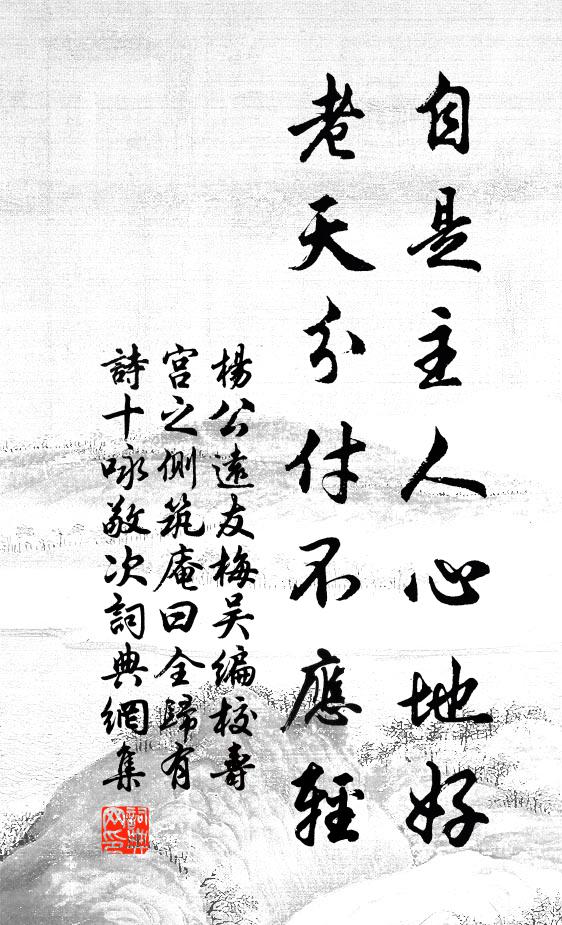 自是主人心地好
老天分付不應輕
楊公遠友梅吴編校壽
宫之側筑庵曰全歸有
詩十咏敬次詞典網集
詞典
网印